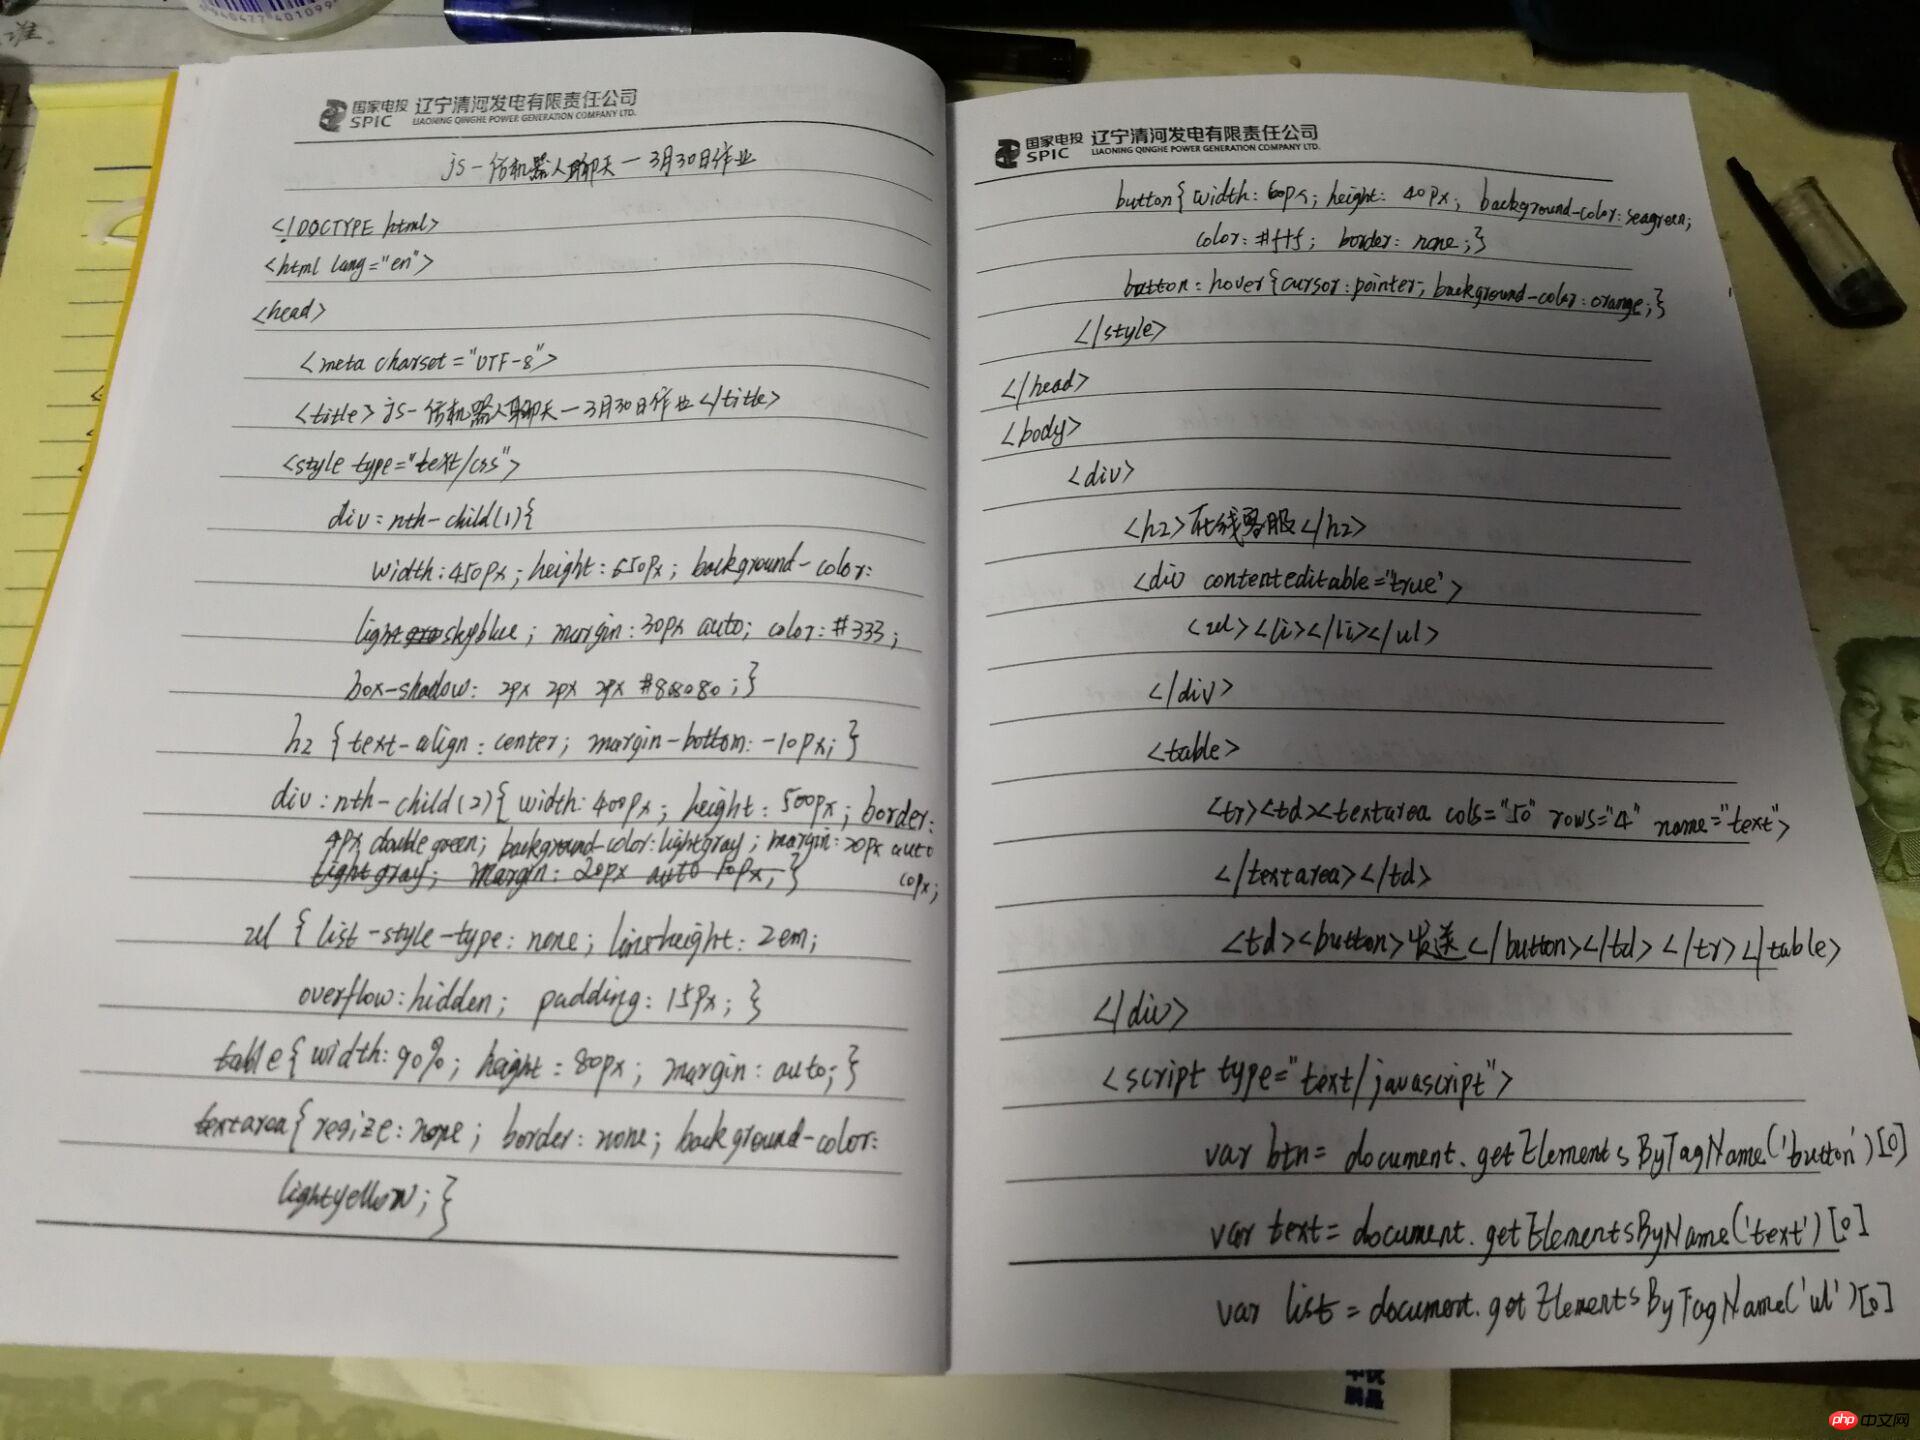 940477401099
准.
国家电投 辽宁清河发电有限责任公司
SPIC LIAONING QINGHE POWER GENERATION COMPANY LTD.
js-仿机器人聊天-3月30日作业
<!DOCTYPE html>
<html lang="en">
<head>
<meta charset="UTF-8">
<title>js-仿机器人聊天-3月30日作业</title>
<style type="text/css">
div:nth-child(1){
width:450px; height:650px; background-color:
lightskyblue; margin:30px auto; color:#333;
box-shadow: 2px 2px 2px #808080;}
h2 {text-align:center; margin-bottom:-10px;}
div:nth-child(2){width:400px; height:500px; border:
4px double green; background-color:lightgray; margin:20px auto
lightgray; margin:20px auto 10px;} 10px;
ul {list-style-type:none; line-height:2em;
overflow:hidden; padding:15px;}
table{width:90%; height:80px; margin:auto;}
textarea{resize:none; border:none; background-color:
lightyellow;}
国家电投 辽宁清河发电有限责任公司
SPIC LIAONING QINGHE POWER GENERATION COMPANY LTD.
button{width:60px; height:40px; background-color:seagreen;
color:#fff; border:none;}
button:hover{cursor:pointer; background-color:orange;}
</style>
</head>
<body>
<div>
<h2>在线客服</h2>
<div contenteditable="true">
<ul><li></li></ul>
</div>
<table>
<tr><td><textarea cols="50" rows="4" name="text">
</textarea></td>
<td><button>发送</button></td></tr></table>
</div>
<script type="text/javascript">
var btn= document.getElementsByTagName('button')[0]
var text= document.getElementsByName('text')[0]
var list= document.getElementsByTagName('ul')[0]
php 中文网